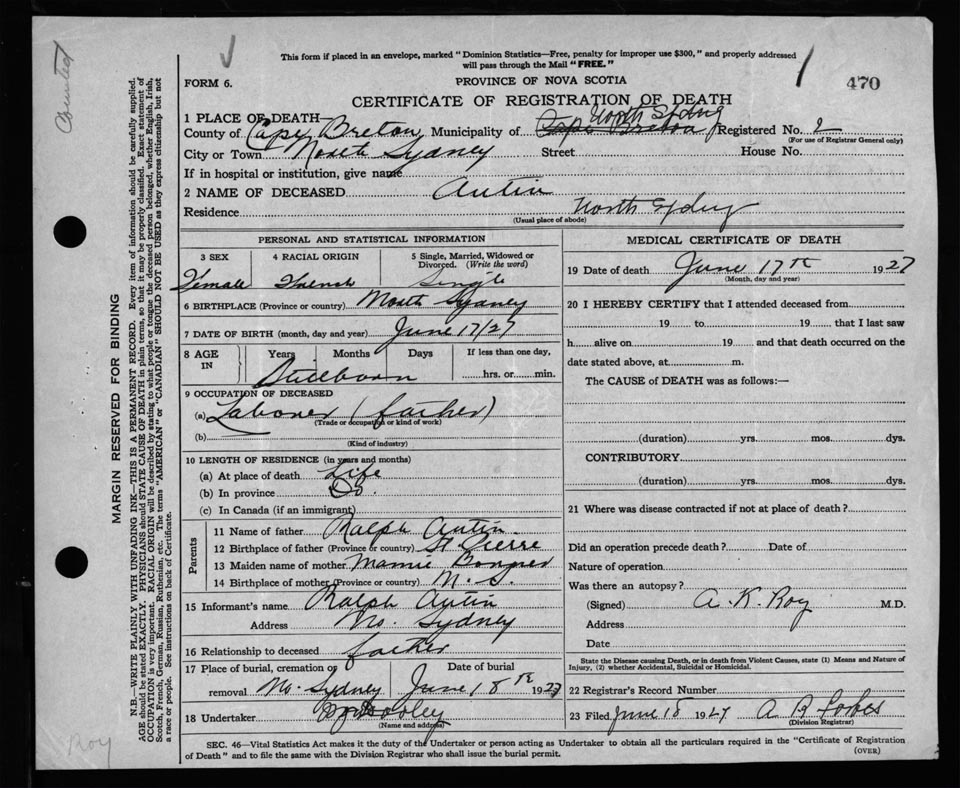 This form if placed in an envelope, marked "Dominion Statistics—Free, penalty for improper use $300," and properly addressed
will pass through the Mail "FREE."
FORM 6.
PROVINCE OF NOVA SCOTIA
470
CERTIFICATE OF REGISTRATION OF DEATH
1 PLACE OF DEATH
North Sydney
County of Cape Breton Municipality of Cape Breton Registered No. 2
(For use of Registrar General only)
City or Town North Sydney Street House No.
If in hospital or institution, give name
2 NAME OF DECEASED Autin
Residence North Sydney
(Usual place of abode)
PERSONAL AND STATISTICAL INFORMATION
3 SEX 4 RACIAL ORIGIN 5 Single, Married, Widowed or Divorced. (Write the word)
Female French Single
6 BIRTHPLACE (Province or country) North Sydney
7 DATE OF BIRTH (month, day and year) June 17/27
8 AGE IN Years Months Days If less than one day,
Stillborn hrs. or min.
9 OCCUPATION OF DECEASED
(a) Laborer (father)
(Trade or occupation or kind of work)
(b)
(Kind of industry)
10 LENGTH OF RESIDENCE (in years and months)
(a) At place of death Life
(b) In province Do.
(c) In Canada (if an immigrant)
Parents
11 Name of father Ralph Autin
12 Birthplace of father (Province or country) St. Pierre
13 Maiden name of mother Mamie
14 Birthplace of mother (Province or country) N. S.
15 Informant's name Ralph Autin
Address No. Sydney
16 Relationship to deceased father
17 Place of burial, cremation or removal No. Sydney
Date of burial June 18th 1927
18 Undertaker
(Name and address)
MEDICAL CERTIFICATE OF DEATH
19 Date of death June 17th 1927
(Month, day and year)
20 I HEREBY CERTIFY that I attended deceased from
19 to 19 that I last saw
h alive on 19 and that death occurred on the
date stated above, at m.
The CAUSE of DEATH was as follows:—
(duration) yrs. mos. dys.
CONTRIBUTORY
(duration) yrs. mos. dys.
21 Where was disease contracted if not at place of death?
Did an operation precede death? Date of
Nature of operation
Was there an autopsy?
(Signed) A. K. Roy M.D.
Address
Date
State the Disease causing Death, or in death from Violent Causes, state (1) Means and Nature of
Injury, (2) whether Accidental, Suicidal or Homicidal.
22 Registrar's Record Number
23 Filed June 18 1927 A R Forbes
(Division Registrar)
SEC. 46—Vital Statistics Act makes it the duty of the Undertaker or person acting as Undertaker to obtain all the particulars required in the "Certificate of Registration
of Death" and to file the same with the Division Registrar who shall issue the burial permit.
(OVER)
Counted
MARGIN RESERVED FOR BINDING
N.B.—WRITE PLAINLY WITH UNFADING INK—THIS IS A PERMANENT RECORD. Every item of information should be carefully supplied.
AGE should be stated EXACTLY. PHYSICIANS should STATE CAUSE OF DEATH in plain terms, so that it may be properly classified. Exact statement of
OCCUPATION is very important. RACIAL ORIGIN will be described by stating to what people or tongue the deceased person belonged, whether English, Irish,
Scotch, French, German, Russian, Ruthenian, etc. The terms "AMERICAN" or "CANADIAN" SHOULD NOT BE USED as they express citizenship but not
a race or people. See instructions on back of Certificate.
Roy